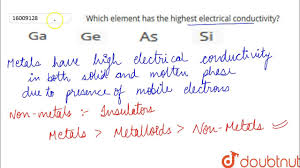 16009128
Which element has the highest electrical conductivity?
Ga Ge As Si
Metals have high electrical conductivity
in both solid and molten phase
due to presence of mobile electrons
Non-metals :- Insulators
Metals > Metalloids > Non-Metals
doubtnut